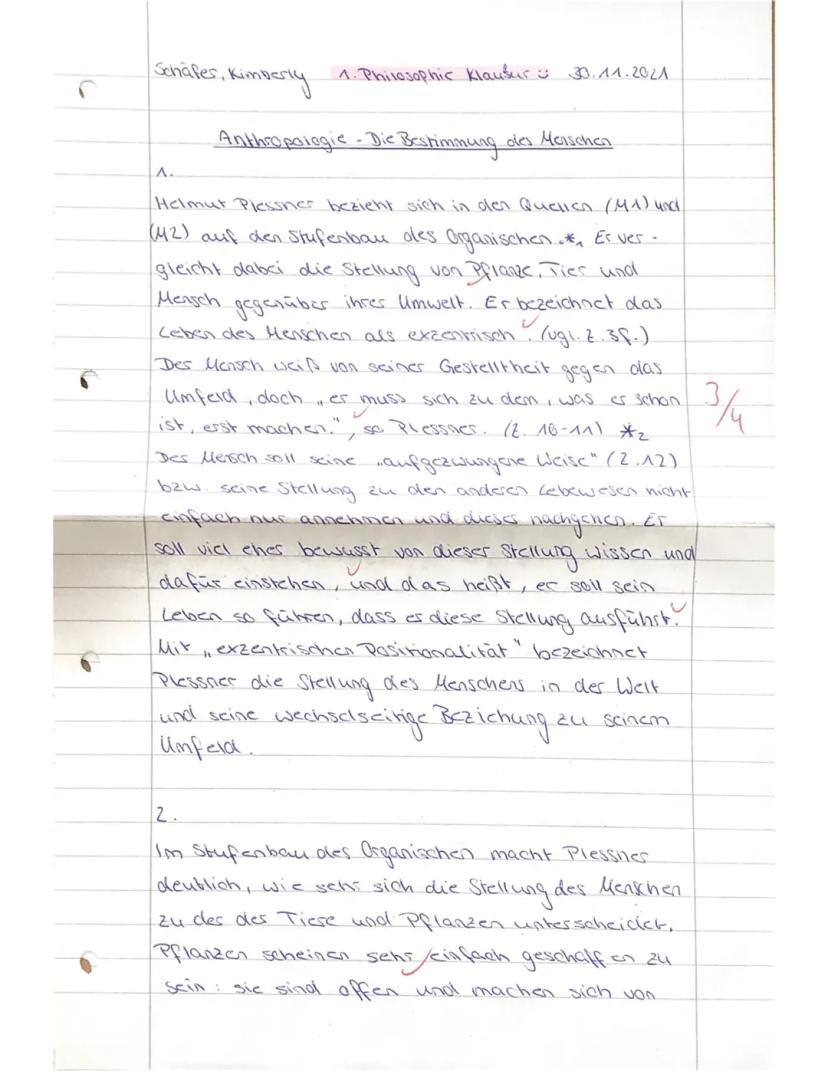 Schäfer, Kimberly 1. Philosophie Klausur :) 30.11.2021
Anthropologie - Die Bestimmung des Menschen
1.
Helmut Plessner bezieht sich in den Quellen (M1) und
(M2) auf den Stufenbau des Organischen.*1 Er ver-
gleicht dabei die Stellung von Pflanze, Tier und
Mensch gegenüber ihrer Umwelt. Er bezeichnet das
Leben des Menschen als exzentrisch. (vgl. Z. 3f.)
Der Mensch weiß von seiner Gestelltheit gegen das
Umfeld, doch „er muss sich zu dem, was er schon
ist, erst machen.", so Plessner. (Z. 10-11) *2
3/4
Der Mensch soll seine „aufgezwungene Weise" (Z.12)
bzw. seine Stellung zu den anderen Lebewesen nicht
einfach nur annehmen und dieser nachgehen. Er
soll viel eher bewusst von dieser Stellung wissen und
dafür einstehen, und das heißt, er soll sein
Leben so führen, dass er diese Stellung ausführt.
Mit „exzentrischen Positionalität" bezeichnet
Plessner die Stellung des Menschens in der Welt
und seine wechselseitige Beziehung zu seinem
Umfeld.
2.
Im Stufenbau des Organischen macht Plessner
deutlich, wie sehr sich die Stellung des Menschen
zu der der Tiere und Pflanzen unterscheidet.
Pflanzen scheinen sehr einfach geschaffen zu
sein: sie sind offen und machen sich von